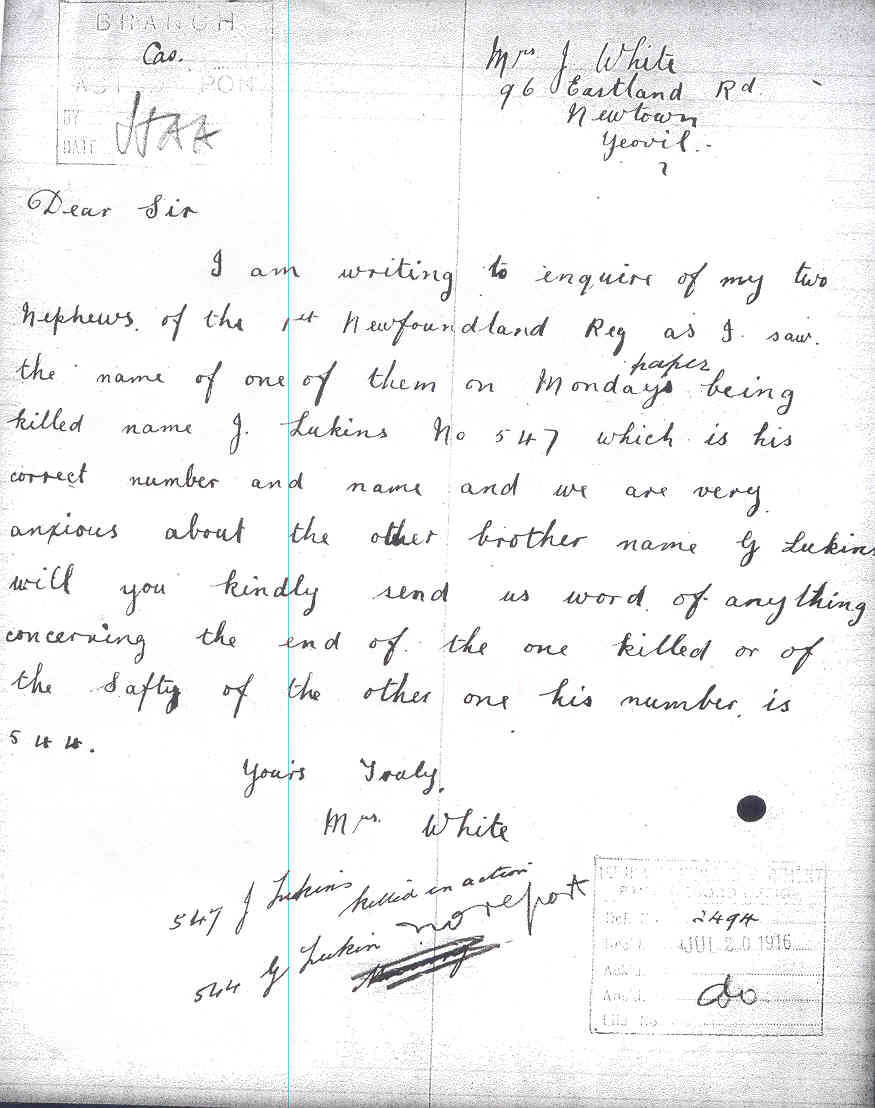 BRANCH
Cas.
BY
DATE
Mrs J. White
96 Eastland Rd.
Newtown
Yeovil.
Dear Sir
I am writing to enquire of my two
Nephews. of the 1st Newfoundland Reg as I. saw.
paper
the name of one of them on Mondays being
killed name J. Lukins No 547 which is his
correct number and name and we are very
anxious about the other brother name G Lukins
will you kindly send us word of anything
concerning the end of the one killed or of
the Safty of the other one his number is
544.
Yours Truly.
Mrs. White
547 J Lukins killed in action
544 G Lukin no report
2494
JUL 20 1916
do